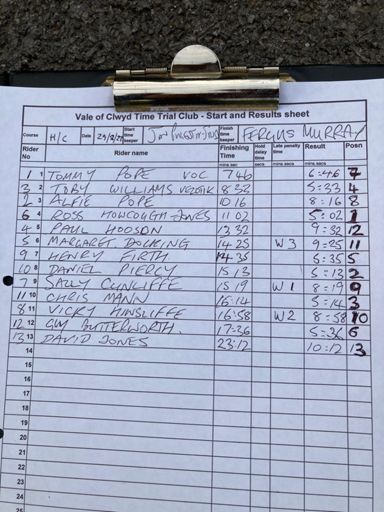 Vale of Clwyd Time Trial Club - Start and Results sheet
Course H/C Date Start time keeper Finish time keeper FERGUS MURRAY
Rider No Rider name Finishing Time Hold delay time Late penalty time Result Posn
mins.secs mins.secs mins.secs
1 1 TOMMY POPE VOC 7 46 6:46 7
3 2 TOBY WILLIAMS 8 32 5:33 4
2 3 ALFIE POPE 10 16 8:16 8
6 4 ROSS HOWCOUGH-JONES 11 02 5:02 1
4 5 PAUL HODSON 13 32 9:32 12
5 6 MARGARET 14 25 W 3 9:25 11
9 7 HENRY FIRTH 14:35 5:35 5
10 8 DANIEL PIERCY 15 13 5:13 2
7 9 SALLY CUNLIFFE 15 19 W 1 8:19 9
11 10 CHRIS MANN 16:14 5:14 3
8 11 VICKY HINSLIFFE 16:58 W 2 8:58 10
12 12 GUY BUTTERWORTH. 17:36 5:36 6
13 13 DAVID JONES 23:12 10:12 13
14
15
16
17
18
19
20
21
22
23
24
25